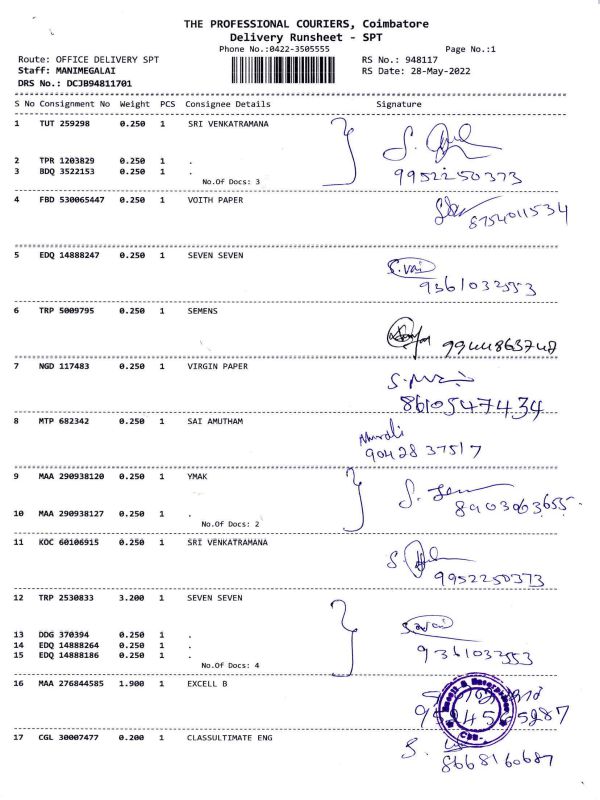 THE PROFESSIONAL COURIERS, Coimbatore
Delivery Runsheet - SPT
Phone No.:0422-3505555 Page No.:1
Route: OFFICE DELIVERY SPT RS No.: 948117
Staff: MANIMEGALAI RS Date: 28-May-2022
DRS No.: DCJB94811701
S No Consignment No Weight PCS Consignee Details Signature
1 TUT 259298 0.250 1 SRI VENKATRAMANA
2 TPR 1203829 0.250 1 .
3 BDQ 3522153 0.250 1 . 9952250373
No.Of Docs: 3
4 FBD 530065447 0.250 1 VOITH PAPER
8754011534
5 EDQ 14888247 0.250 1 SEVEN SEVEN
9361032553
6 TRP 5009795 0.250 1 SEMENS
7 NGD 117483 0.250 1 VIRGIN PAPER
8610547434
8 MTP 682342 0.250 1 SAI AMUTHAM
Murali
9042837517
9 MAA 290938120 0.250 1 YMAK
8903963655
10 MAA 290938127 0.250 1 .
No.Of Docs: 2
11 KOC 60106915 0.250 1 SRI VENKATRAMANA
9952250373
12 TRP 2530833 3.200 1 SEVEN SEVEN
13 DDG 370394 0.250 1 .
14 EDQ 14888264 0.250 1 .
15 EDQ 14888186 0.250 1 . 9361032553
No.Of Docs: 4
16 MAA 276844585 1.900 1 EXCELL B
17 CGL 30007477 0.200 1 CLASSULTIMATE ENG
8668160687